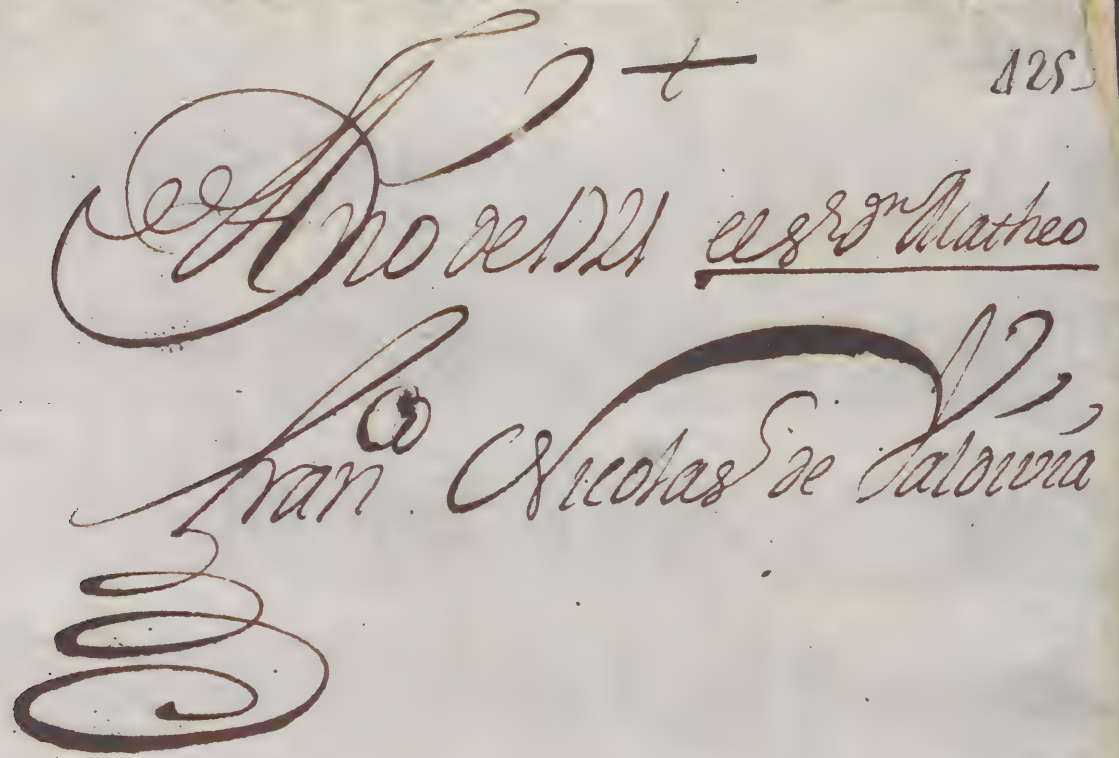 + 125
Año de 1721 el s.r D.n Matheo
Fran.co Nicolas de Valdivia